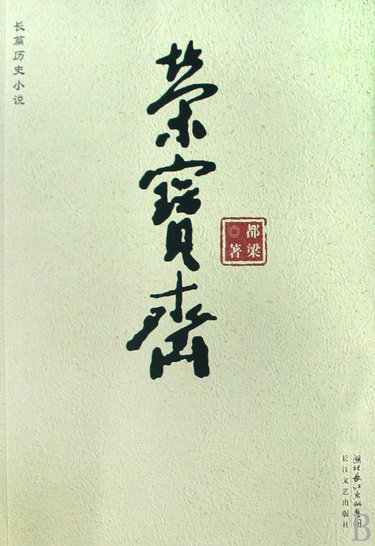 长篇历史小说
荣寶斋
都梁
著
湖北长江出版集团
长江文艺出版社
B